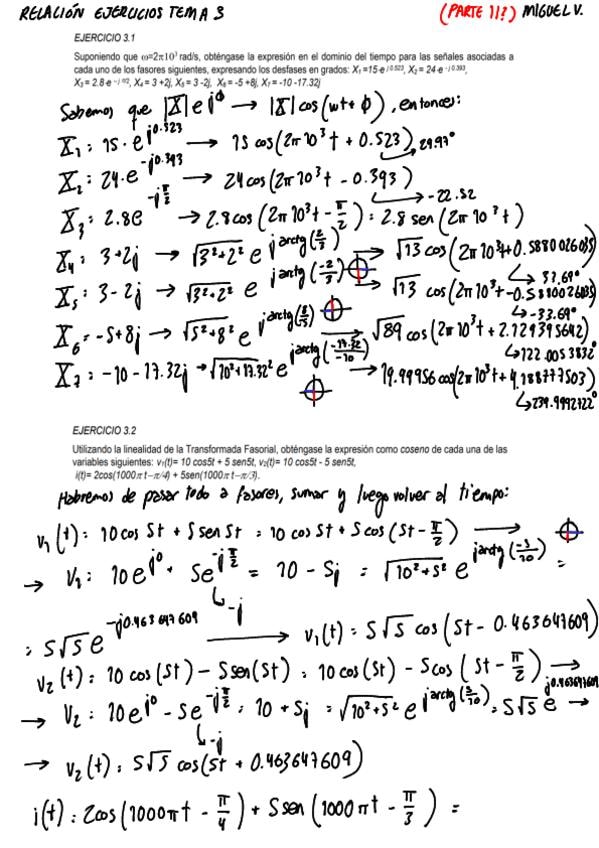 RELACIÓN EJERCICIOS TEMA 3 (PARTE 1!?) MIGUEL V.
EJERCICIO 3.1
Suponiendo que ω=2π10³ rad/s, obténgase la expresión en el dominio del tiempo para las señales asociadas a
cada uno de los fasores siguientes, expresando los desfases en grados: X₁ =15·e^(j 0.523), X₂ = 24·e^(-j 0.393),
X₃ = 2.8·e^(-j π/2), X₄ = 3 +2j, X₅ = 3 -2j, X₆ = -5 +8j, X₇ = -10 -17.32j
Sabemos que |X|e^(jϕ) → |X|cos(wt+ϕ), entonces:
X₁: 15·e^(j0.523) → 15 cos(2π10³t + 0.523) ↳ 29.97°
X₂: 24·e^(-j0.393) → 24cos(2π10³t - 0.393) ↳ -22.52
X₃: 2.8e^(-jπ/2) → 2.8cos(2π10³t - π/2) = 2.8 sen(2π10³t)
X₄: 3+2j → √(3²+2²) e^(j arctg(2/3)) → √13 cos(2π10³t+0.5880026035) ↳ 33.69°
X₅: 3-2j → √(3²+2²) e^(j arctg(-2/3)) → √13 cos(2π10³t-0.5880026035) ↳ -33.69°
X₆ = -5+8j → √(5²+8²) e^(j arctg(8/-5)) → √89 cos(2π10³t + 2.129395642) ↳ 122.0053832°
X₇ = -10-17.32j → √(10²+17.32²) e^(j arctg(-17.32/-10)) → 19.99956cos(2π10³t+4.188777503) ↳ 239.9992722°
EJERCICIO 3.2
Utilizando la linealidad de la Transformada Fasorial, obténgase la expresión como coseno de cada una de las
variables siguientes: v₁(t)= 10 cos5t + 5 sen5t, v₂(t)= 10 cos5t - 5 sen5t,
i(t)= 2cos(1000π t−π/4) + 5sen(1000π t−π/3).
Habremos de pasar todo a fasores, sumar y luego volver al tiempo:
v₁(t): 10 cos 5t + 5 sen 5t = 10 cos 5t + 5 cos(5t - π/2) →
→ V₁: 10e^(j0) + 5e^(-jπ/2) = 10 - 5j = √(10²+5²) e^(j arctg(-5/10)) =
↳ -j
= 5√5 e^(-j0.463647609) → v₁(t): 5√5 cos(5t - 0.463647609)
v₂(t): 10 cos(5t) - 5sen(5t) = 10 cos(5t) - 5cos(5t - π/2) →
→ V₂: 10e^(j0) - 5e^(-jπ/2) = 10 + 5j = √(10²+5²) e^(j arctg(5/10)) = 5√5 e^(j0.463647609) →
↳ -j
→ v₂(t): 5√5 cos(5t + 0.463647609)
i(t): 2cos(1000πt - π/4) + 5sen(1000πt - π/3) =